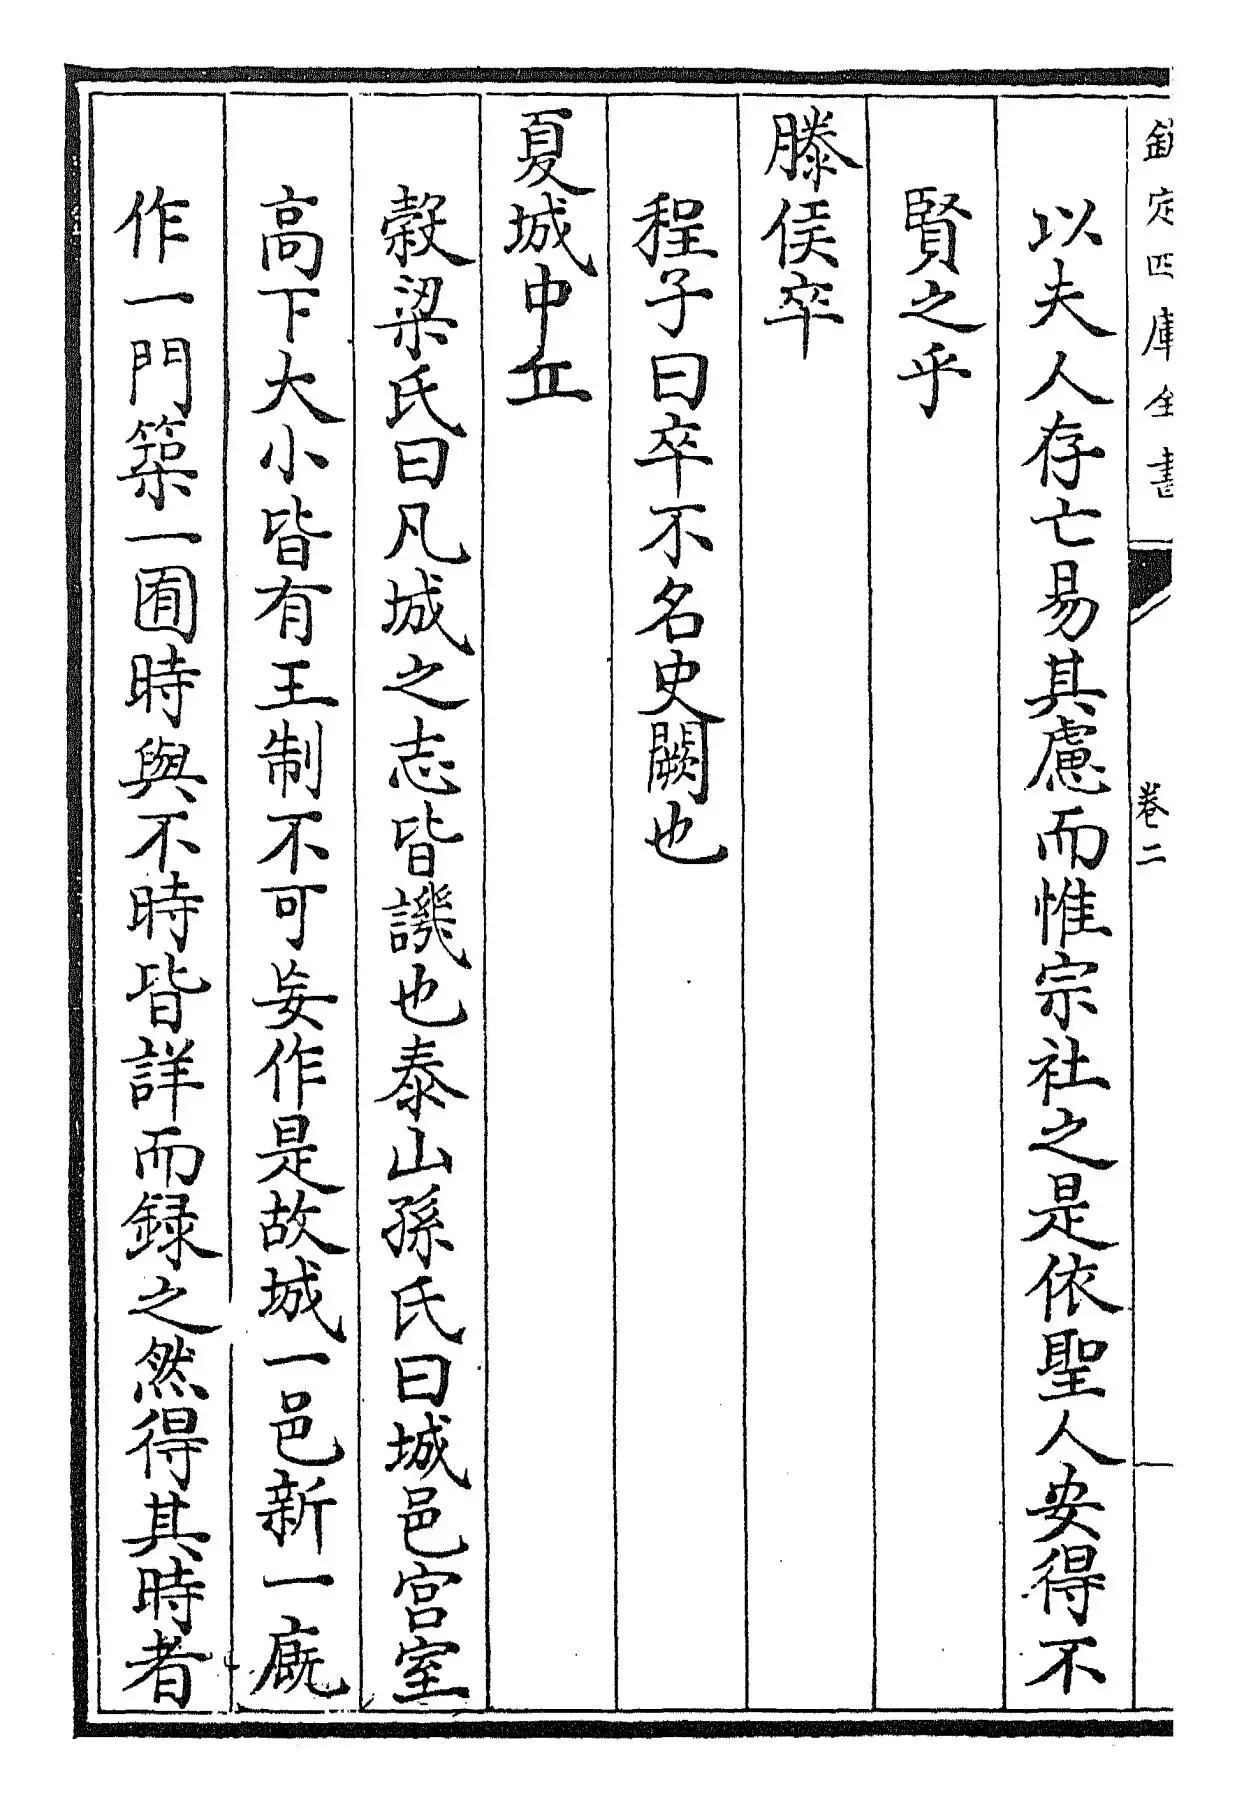 欽定四庫全書
卷二
以夫人存亡易其慮而惟宗社之是依聖人安得不
賢之乎
滕侯卒
程子曰卒不名史闕也
夏城中丘
榖梁氏曰凡城之志皆譏也泰山孫氏曰城邑宫室
高下大小皆有王制不可妄作是故城一邑新一廐
作一門築一囿時與不時皆詳而録之然得其時者